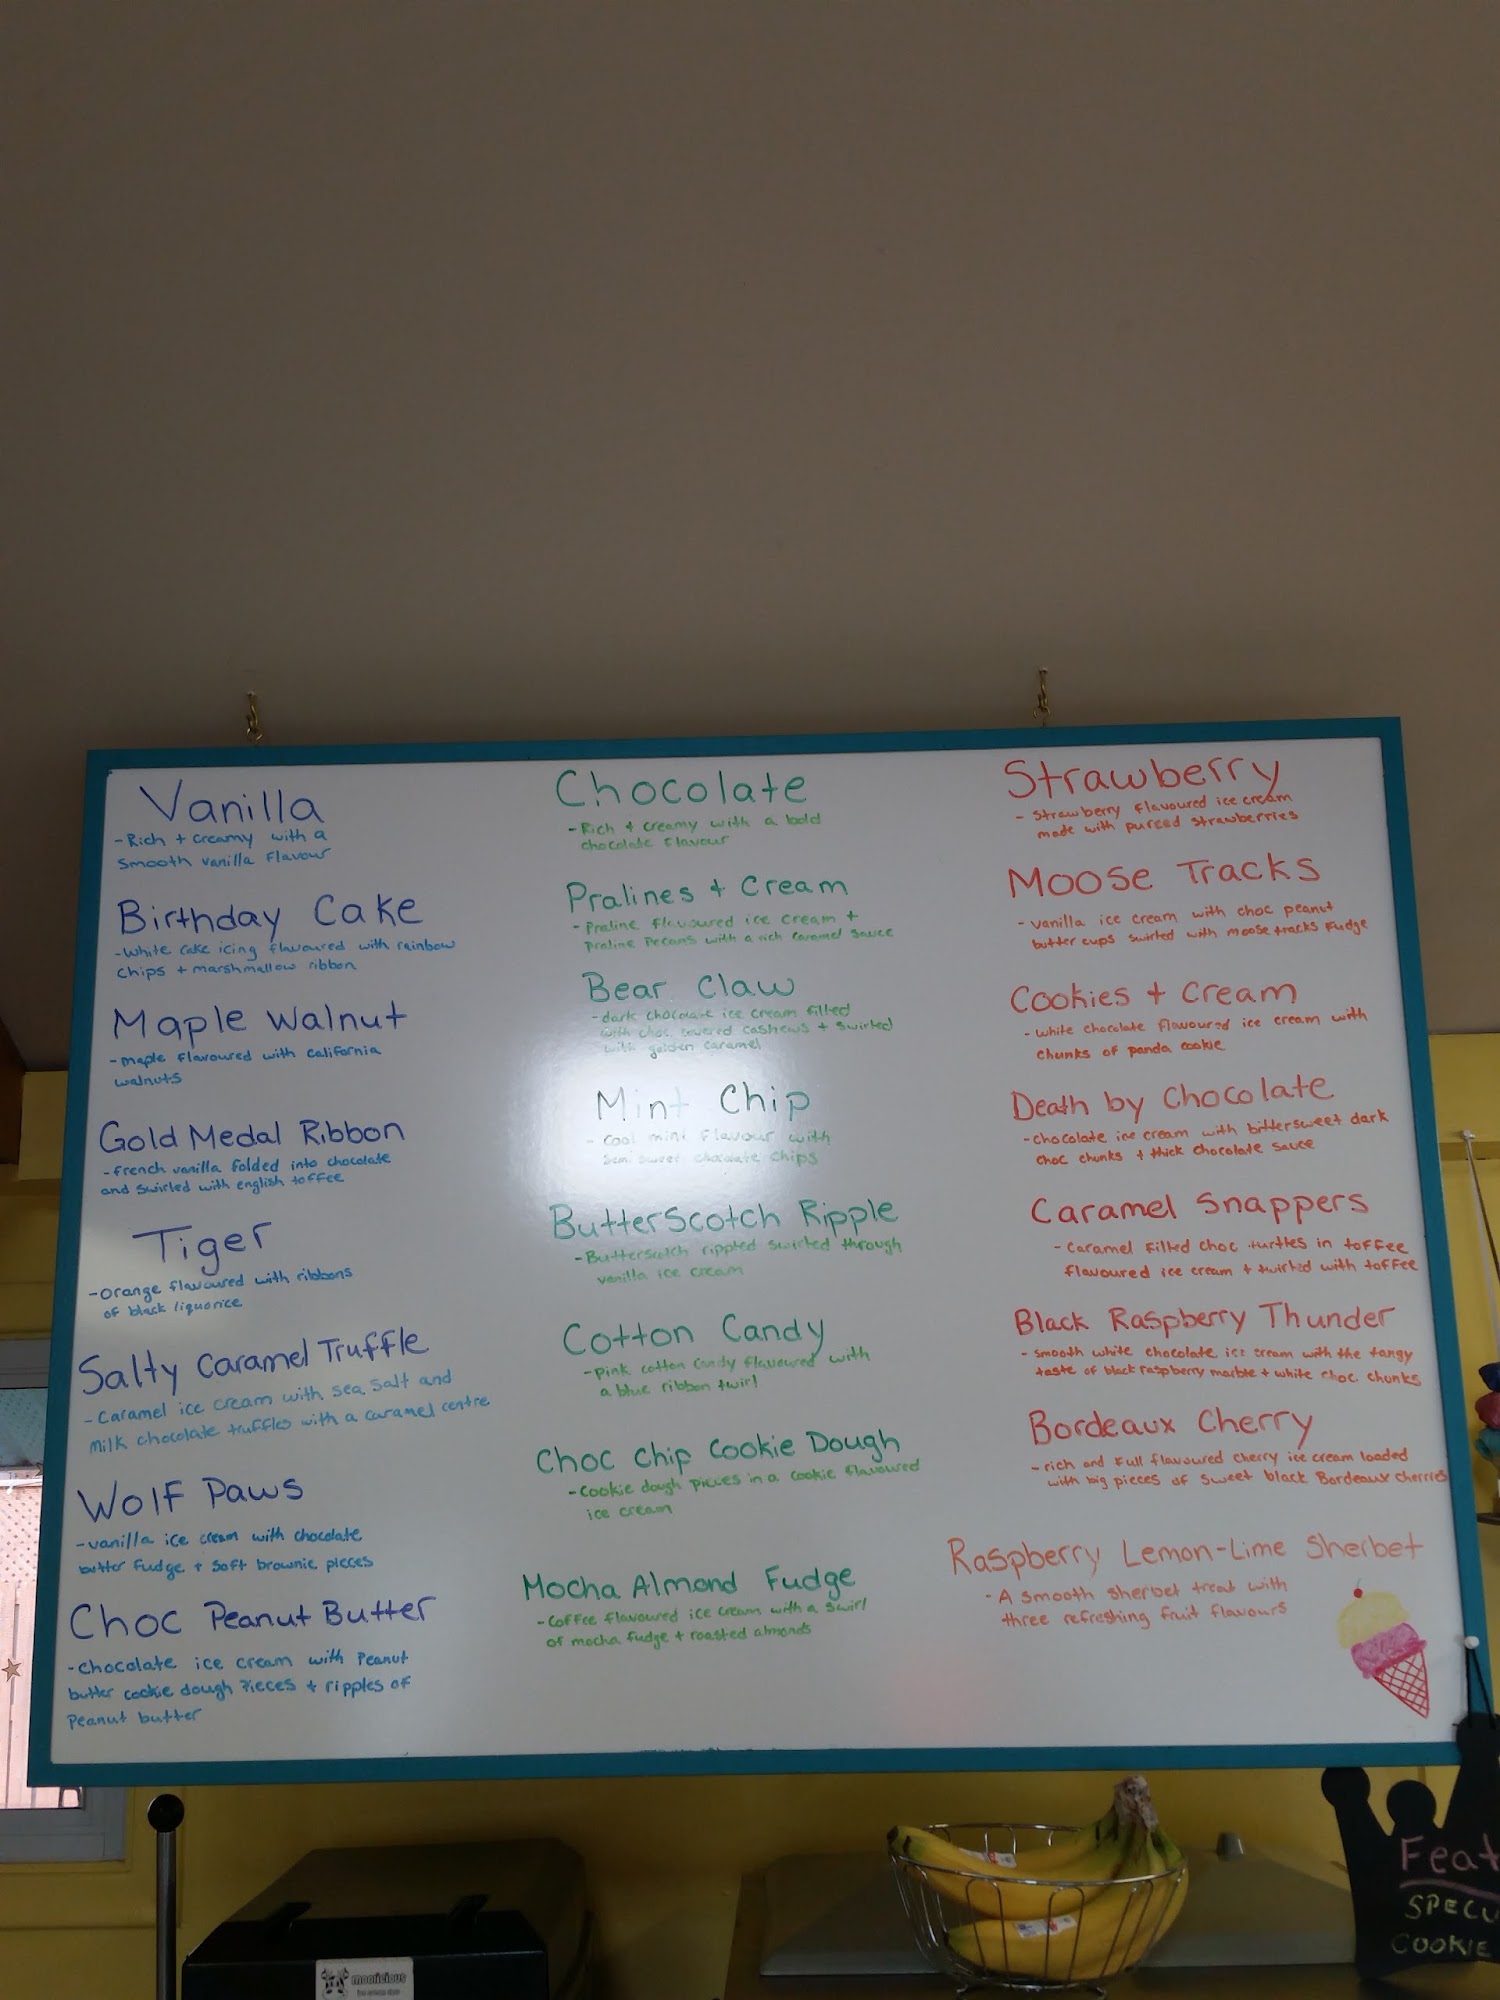 Vanilla
-Rich + creamy with a
smooth vanilla flavour
Birthday Cake
-White cake icing flavoured with rainbow
chips + marshmallow ribbon
Maple Walnut
-maple flavoured with california
walnuts
Gold Medal Ribbon
-french vanilla folded into chocolate
and swirled with english toffee
Tiger
-orange flavoured with ribbons
of black liquorice
Salty Caramel Truffle
-Caramel ice cream with sea salt and
milk chocolate truffles with a caramel centre
Wolf Paws
-vanilla ice cream with chocolate
butter fudge + soft brownie pieces
Choc Peanut Butter
-chocolate ice cream with Peanut
butter cookie dough pieces + ripples of
Peanut butter
Chocolate
-Rich + creamy with a bold
chocolate flavour
Pralines + Cream
-Praline flavoured ice cream +
Praline Pecans with a rich caramel sauce
Bear Claw
-dark chocolate ice cream filled
with choc covered cashews + swirled
with golden caramel
Mint Chip
- Cool mint flavour with
semi sweet chocolate chips
ButterScotch Ripple
-Butterscotch rippled swirled through
vanilla ice cream
Cotton Candy
-pink cotton candy flavoured with
a blue ribbon twirl
Choc Chip Cookie Dough
-Cookie dough pieces in a cookie flavoured
ice cream
Mocha Almond Fudge
-Coffee flavoured ice cream with a swirl
of mocha fudge + roasted almonds
Strawberry
- Strawberry flavoured ice cream
made with pureed strawberries
Moose Tracks
-vanilla ice cream with choc peanut
butter cups swirled with moose tracks Fudge
Cookies + Cream
-white chocolate flavoured ice cream with
chunks of panda cookie
Death by Chocolate
-chocolate ice cream with bittersweet dark
choc chunks + thick chocolate sauce
Caramel Snappers
-Caramel filled choc turtles in toffee
flavoured ice cream + twirled with toffee
Black Raspberry Thunder
- smooth white chocolate ice cream with the tangy
taste of black raspberry marble + white choc chunks
Bordeaux Cherry
-rich and full flavoured cherry ice cream loaded
with big pieces of sweet black Bordeaux cherries
Raspberry Lemon-Lime Sherbet
-A smooth sherbet treat with
three refreshing fruit flavours
Feat
SPECU
COOKIE
mooricious